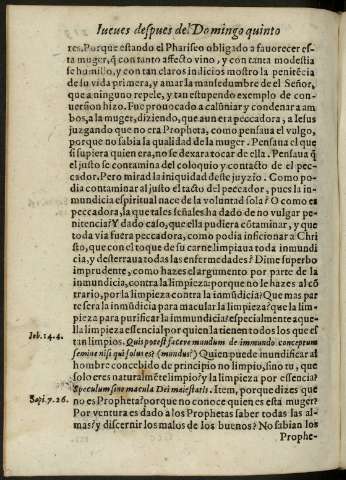 Iueues despues del Domingo quinto
res. Porque estando el Phariseo obligado a fauorecer es-
ta muger, q̃ con tanto affecto vino, y con tanta modestia
se humillo, y con tan claros indicios mostro la penitẽcia
de su vida primera, y amar la mansedumbre del Señor,
que a ninguno repele, y tan estupendo exemplo de con-
uersion hizo. Fue prouocado a calũniar y condenar a am
bos, a la muger, diziendo, que aun era peccadora, a Iesus
juzgando que no era Propheta, como pensaua el vulgo,
porque no sabia la qualidad de la muger. Pensaua el que
si supiera quien era, no se dexara tocar de ella. Pensaua q̃
el justo se contamina del coloquio y contacto de el pec-
cador. Pero mirad la iniquidad deste juyzio. Como po-
dia contaminar al justo el tacto del peccador, pues la in-
mundicia espiritual nace de la voluntad sola? O como es
peccadora, la que tales señales ha dado de no vulgar pe-
nitencia? Y dado caso, que ella pudiera cõtaminar, y que
toda via fuera peccadora, como podia inficionar a Chri
sto, que con el toque de su carne limpiaua toda inmundi
cia, y desterraua todas las enfermedades? Dime superbo
imprudente, como hazes el argumento por parte de la
inmundicia, contra la limpieza: porque no le hazes al cõ
trario, por la limpieza contra la inmũdicia? Que mas par
te sera la inmũdicia para macular la limpieza? que la lim-
pieza para purificar la inmundicia? especialmente aque-
lla limpieza essencial por quien la tienen todos los que es
Iob. 14. 4.
tan limpios. Quis potest facere mundum de immundo conceptum
semine nisi qui solus es? (mundus?) Quien puede inundificar al
hombre concebido de principio no limpio, sino tu, que
solo eres naturalmẽte limpio? y la limpieza por essencia?
Speculum sine macula Dei maiestatis. Item, porque dizes que
Sapi. 7. 26.
no es Propheta? porque no conoce quien es esta muger?
Por ventura es dado a los Prophetas saber todas las al-
mas? y discernir los malos de los buenos? No sabian los
Prophe-